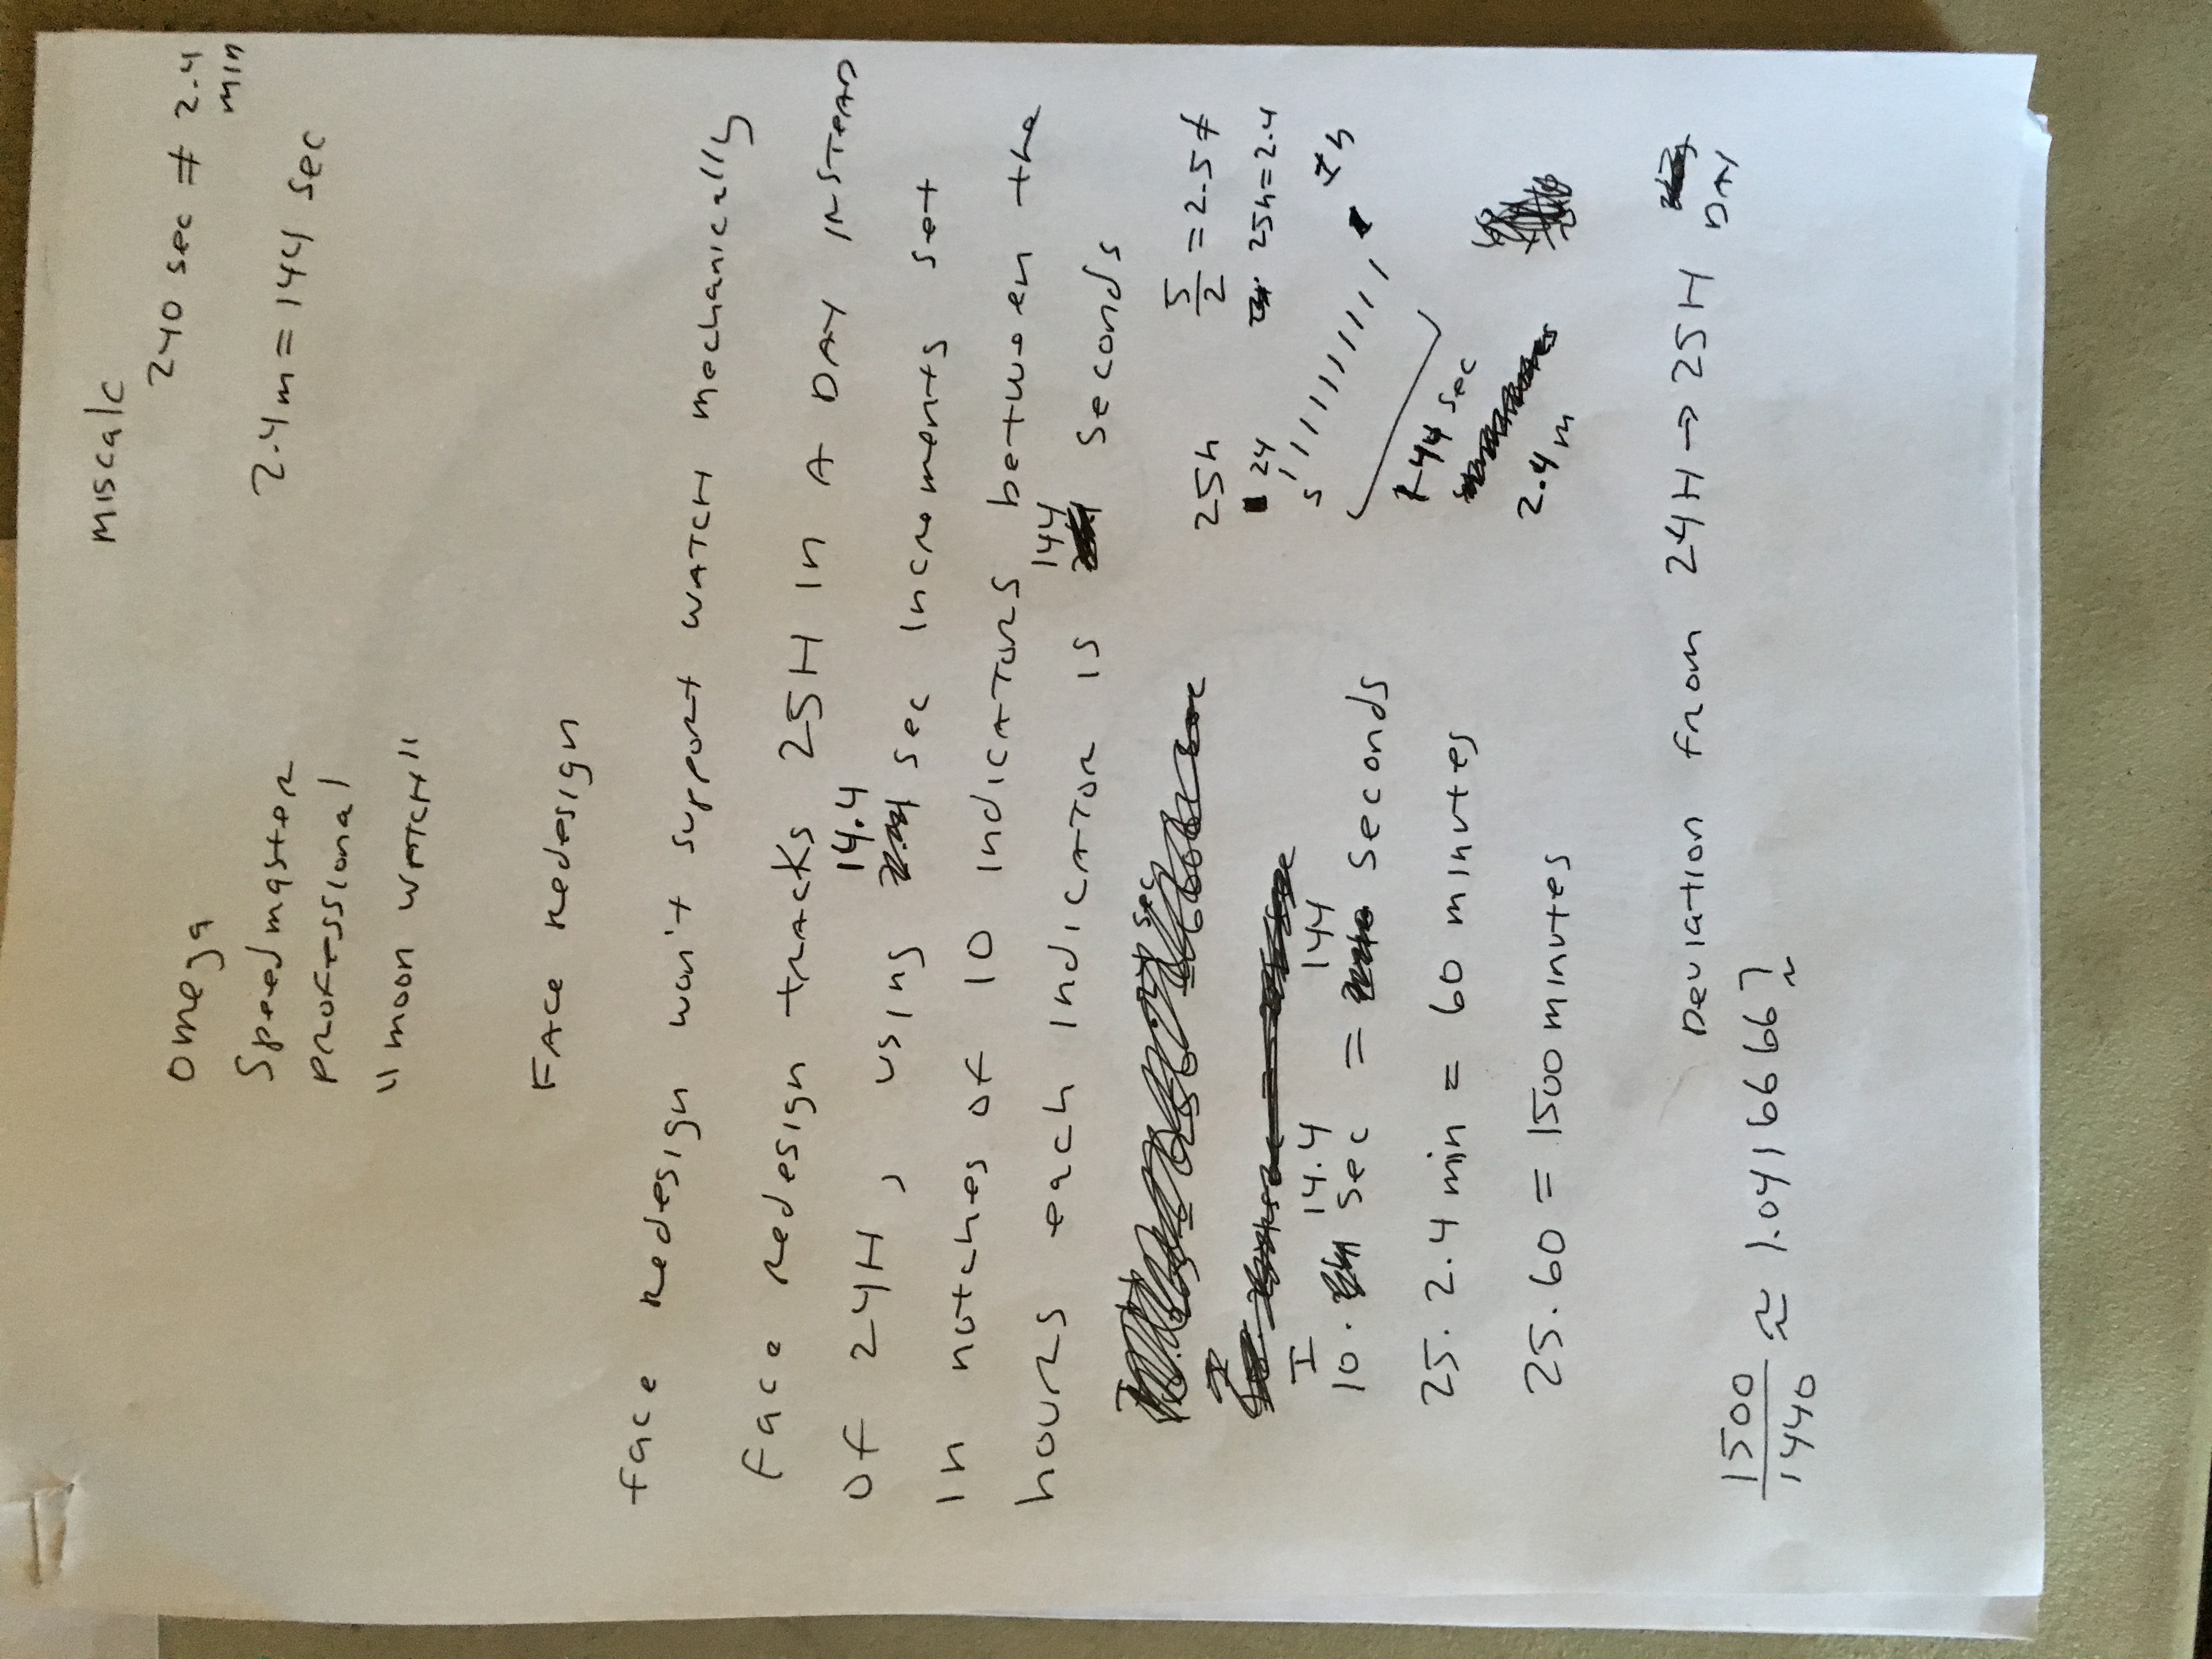 miscalc
240 sec ≠ 2.4
min
2.4m = 144 sec
Omega
Speedmaster
Professional
"moon WATCH"
FACe Redesign
face Redesign won't support WATCH mechanically
Face Redesign tRACKs 25H In A DAY INSTEAD
of 24H, using 14.4 sec Increments set
In notches of 10 IndICATORS between the
hours each IndICATOR is 144 seconds
25h
24
5/2 = 2.5 ≠
25h = 2.4
5
1h
I
10 · 14.4 sec = 144 seconds
144 sec
25 · 2.4 min = 60 minutes
2.4m
25 · 60 = 1500 minutes
Deviation from 24H → 25H DAY
1500/1440 ≈ 1.04166667